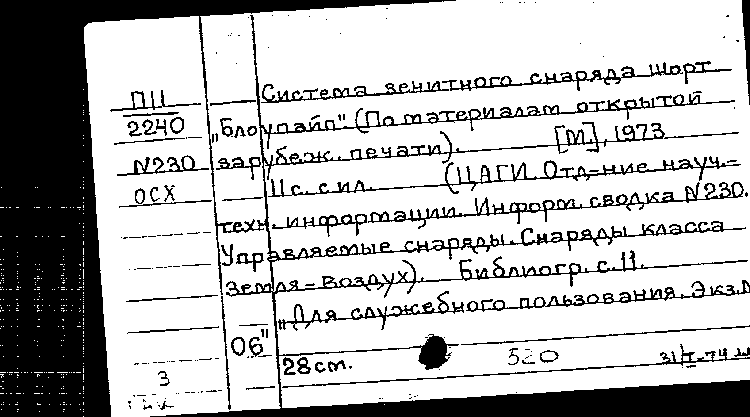 П11
2240
N230
ОСХ
Система зенитного снаряда Шорт
„Блоупайп". (По материалам открытой
зарубеж. печати). [М.], 1973
11с. с ил. (ЦАГИ. Отд=ние науч.=
техн. информации. Информ. сводка N230.
Управляемые снаряды. Снаряды класса
Земля=воздух). Библиогр. с.11.
„Для служебного пользования. Экз. N
06"
28 см. 520
3